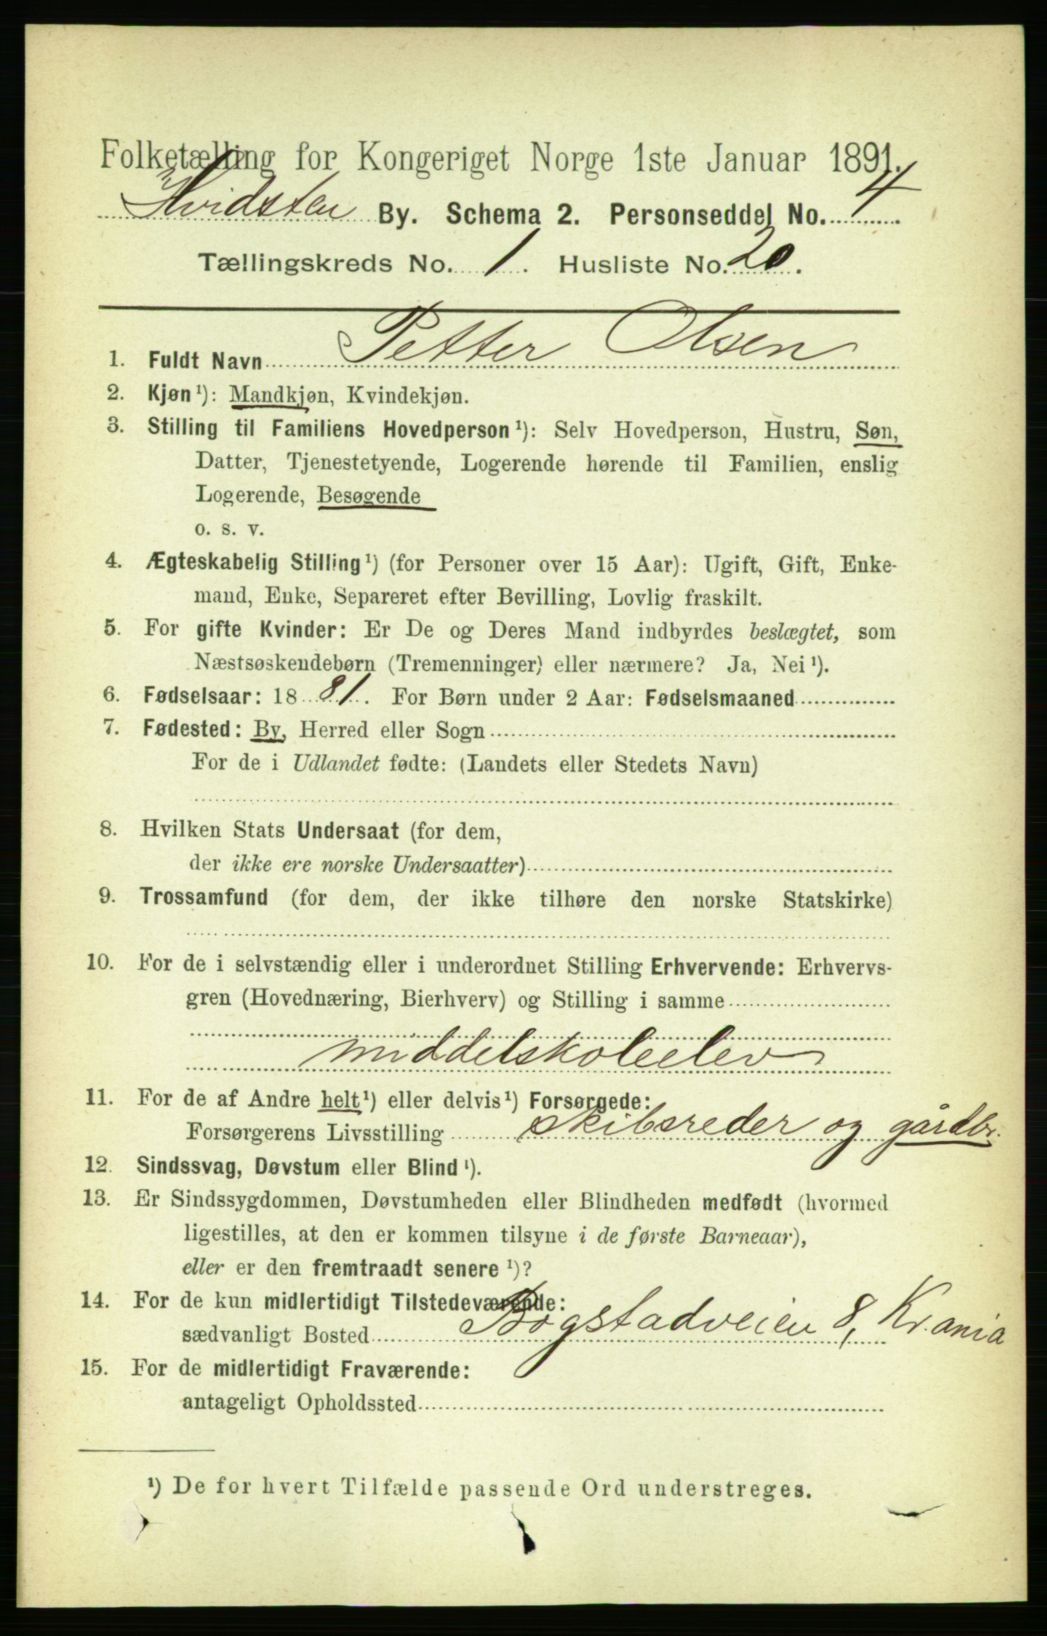 Folketælling for Kongeriget Norge 1ste Januar 1891.
Hvidsten By. Schema 2. Personseddel No. 4
Tællingskreds No. 1. Husliste No. 20.
1. Fuldt Navn Petter Olsen
2. Kjøn ¹): Mandkjøn, Kvindekjøn.
3. Stilling til Familiens Hovedperson ¹): Selv Hovedperson, Hustru, Søn,
Datter, Tjenestetyende, Logerende hørende til Familien, enslig
Logerende, Besøgende
o. s. v.
4. Ægteskabelig Stilling ¹) (for Personer over 15 Aar): Ugift, Gift, Enke-
mand, Enke, Separeret efter Bevilling, Lovlig fraskilt.
5. For gifte Kvinder: Er De og Deres Mand indbyrdes beslægtet, som
Næstsøskendebørn (Tremenninger) eller nærmere? Ja, Nei ¹).
6. Fødselsaar: 1881. For Børn under 2 Aar: Fødselsmaaned
7. Fødested: By, Herred eller Sogn
For de i Udlandet fødte: (Landets eller Stedets Navn)
8. Hvilken Stats Undersaat (for dem,
der ikke ere norske Undersaatter)
9. Trossamfund (for dem, der ikke tilhøre den norske Statskirke)
10. For de i selvstændig eller i underordnet Stilling Erhvervende: Erhvervs-
gren (Hovednæring, Bierhverv) og Stilling i samme
middelskoleelev
11. For de af Andre helt ¹) eller delvis ¹) Forsørgede:
Forsørgerens Livsstilling skibsreder og gårdbr.
12. Sindssvag, Døvstum eller Blind ¹).
13. Er Sindssygdommen, Døvstumheden eller Blindheden medfødt (hvormed
ligestilles, at den er kommen tilsyne i de første Barneaar),
eller er den fremtraadt senere ¹)?
14. For de kun midlertidigt Tilstedeværende:
sædvanligt Bosted Bogstadveien 8, Kr.ania
15. For de midlertidigt Fraværende:
antageligt Opholdssted
¹) De for hvert Tilfælde passende Ord understreges.